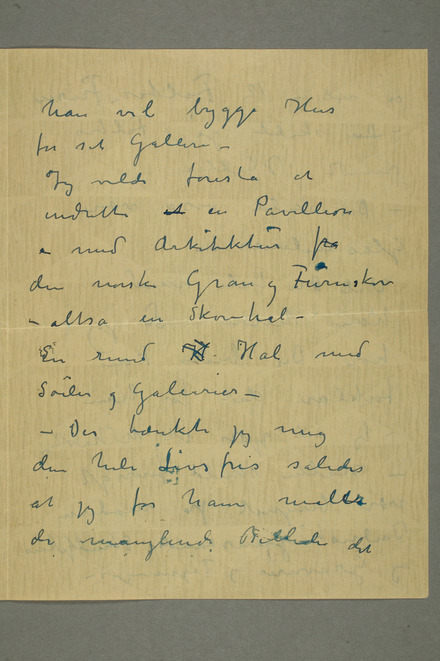 han vil bygge Hus
for sit Galleri –
Jeg vilde foreslå at
indrette et en Pavillion
– med Arkitektur fra
den norske Gran og Furruskov
– altså en Skovhal –
En rund H. Hal med
Søiler og Gallerier –
– Der tænkte jeg mig
den hele Livsfris således
at jeg for ham maller
de manglende Billeder det